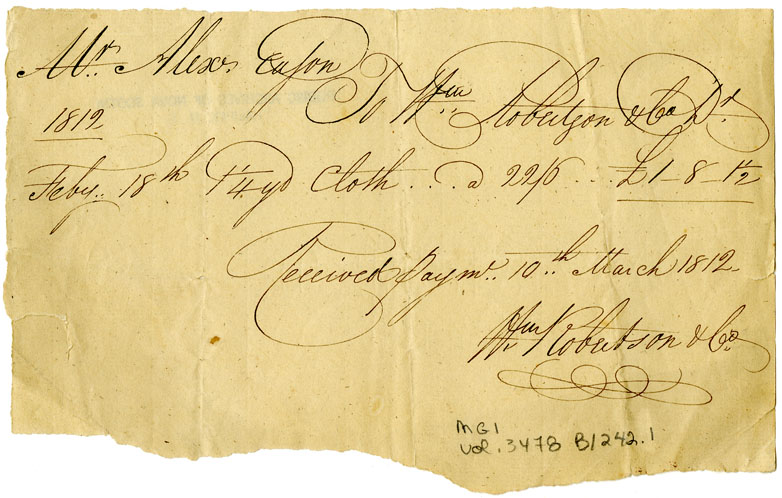 Mr. Alexr. Eason
To Wm. Robertson & Co Dr
1812
Feby. 18th 1 1/4 yd Cloth .. a 22/6 ... £1-8-1 1/2
Received Paymt. 10th March 1812
Wm Robertson & Co.
MG1
vol. 3478 B1242.1